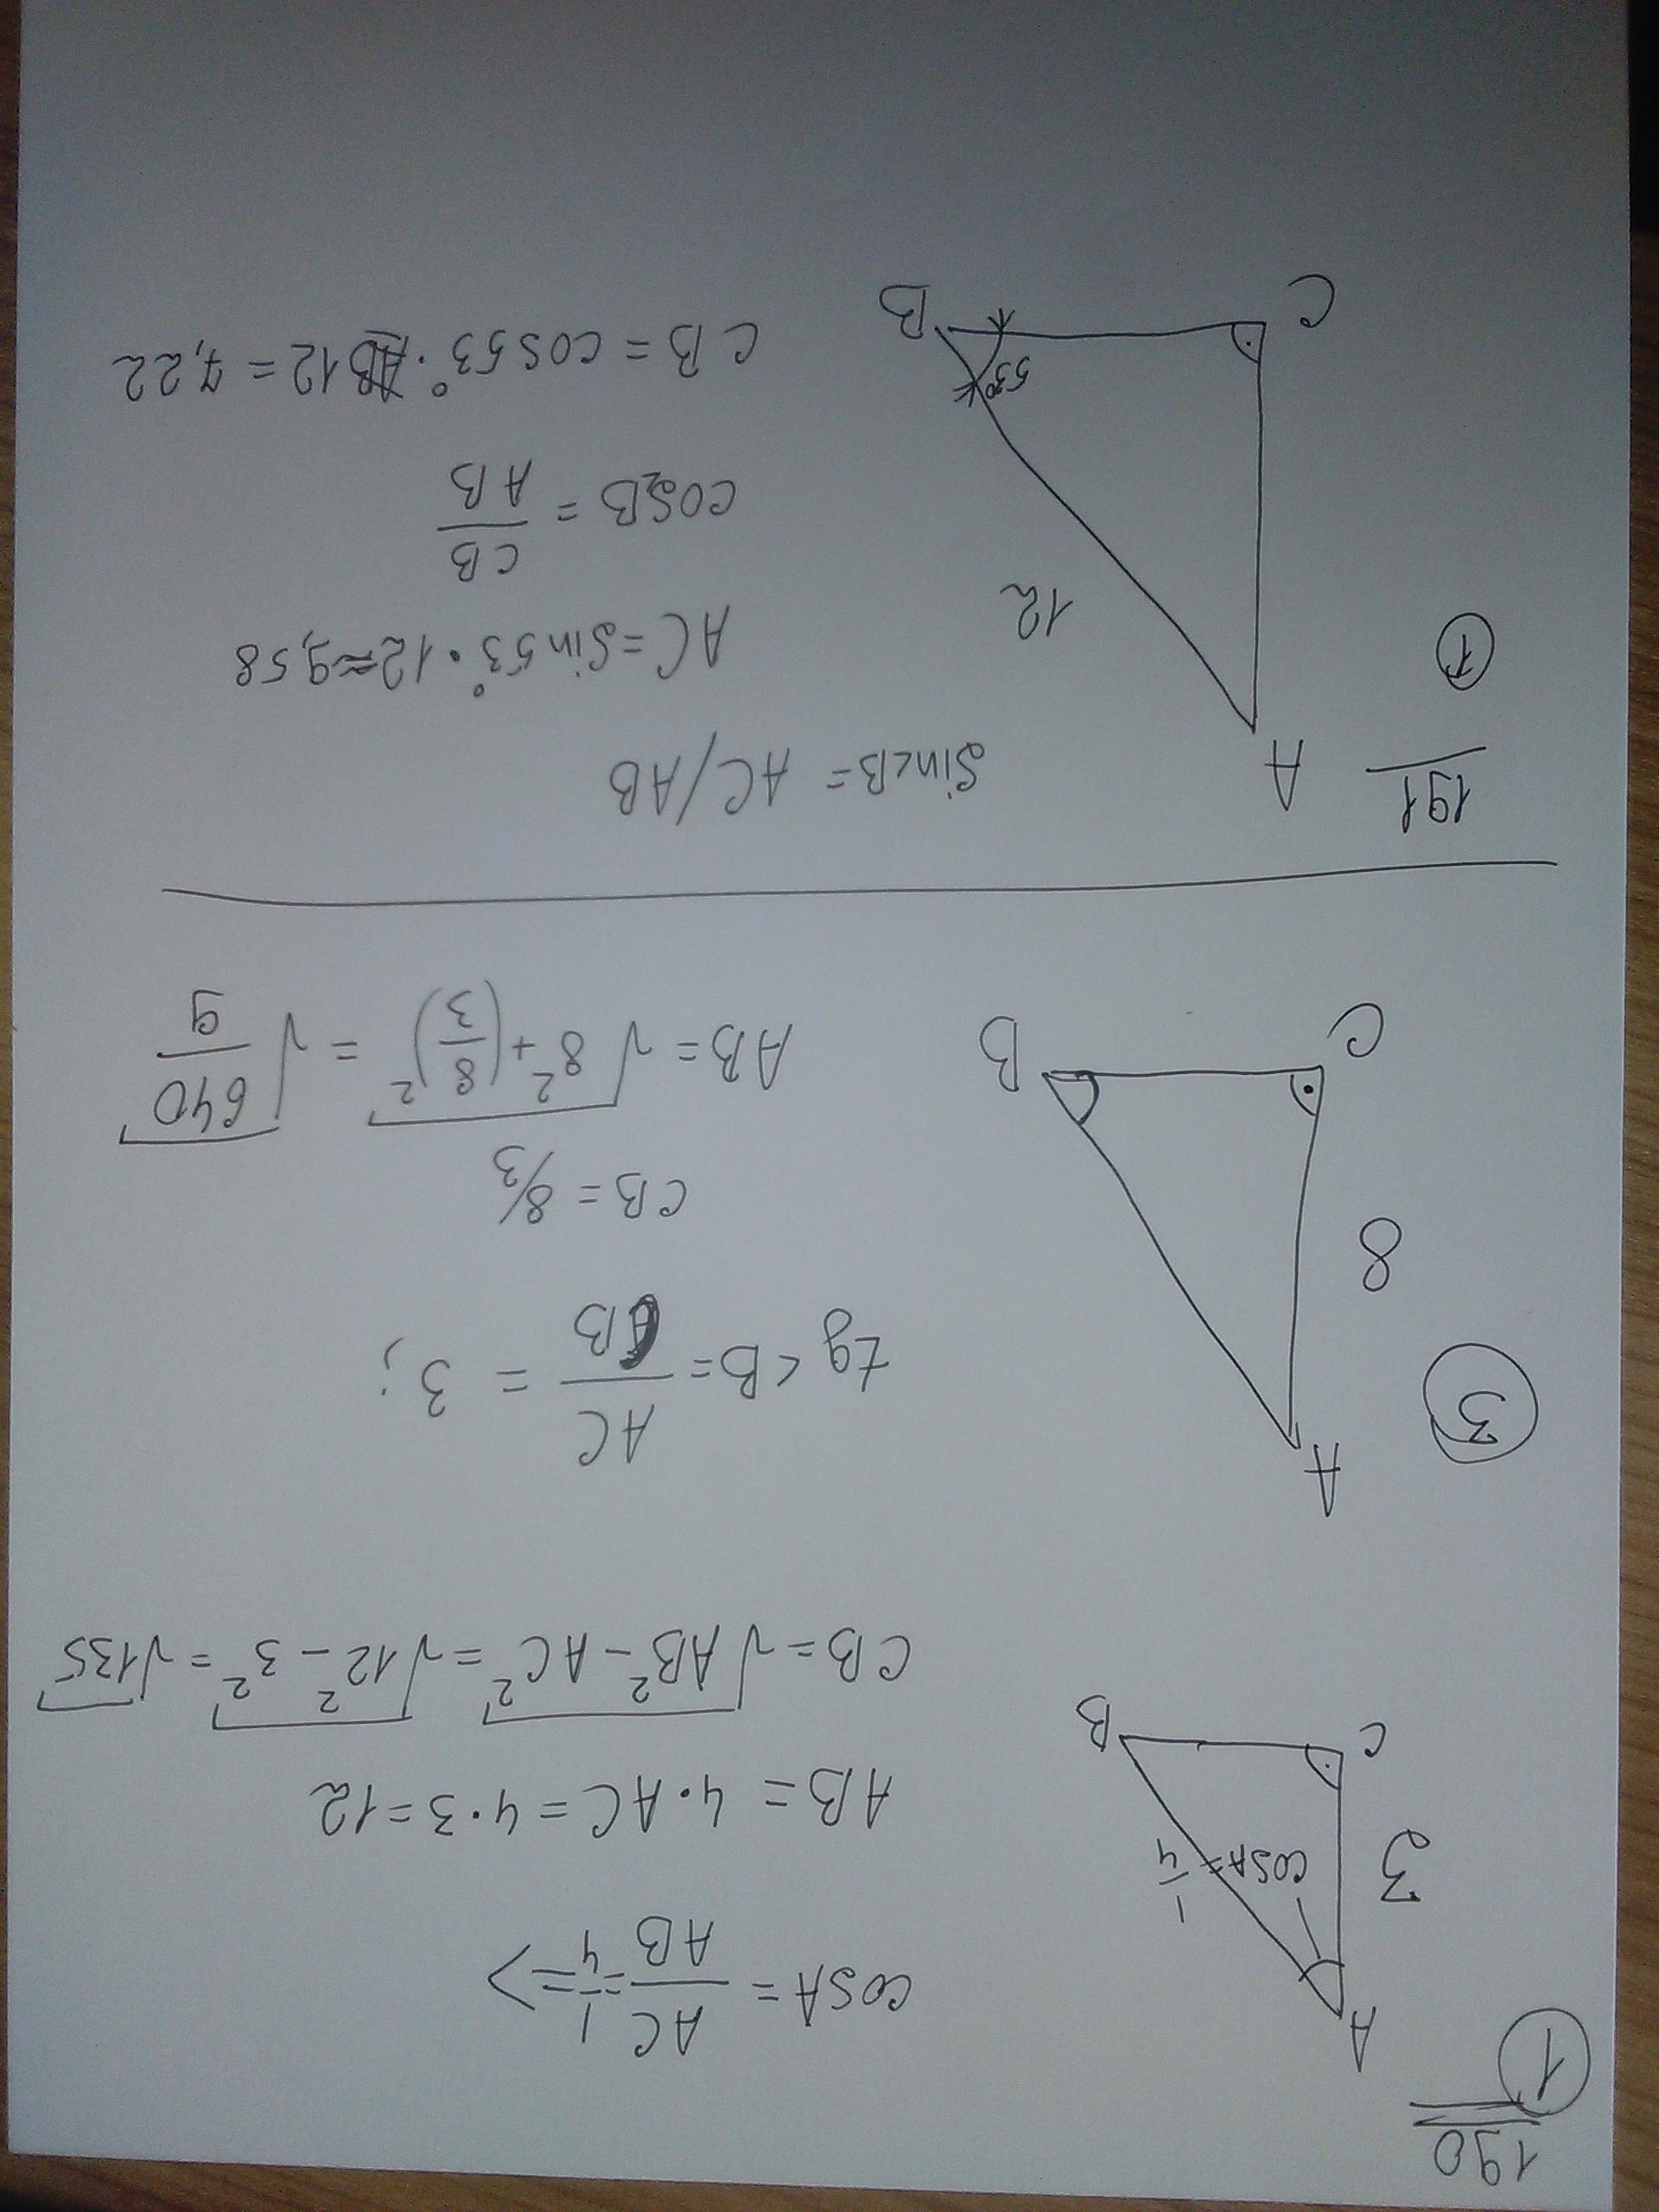 190
1
A
3
cosA = 1/4
C
B
cosA = AC/AB = 1/4 =>
AB = 4·AC = 4·3 = 12
CB = √AB² - AC² = √12² - 3² = √135
3
A
8
C
B
tg <B = AC/CB = 3;
CB = 8/3
AB = √8² + (8/3)² = √640/9
191
1
A
12
53°
C
B
sin<B = AC/AB
AC = sin53°·12 ≈ 9,58
cos<B = CB/AB
CB = cos53°·12 = 7,22